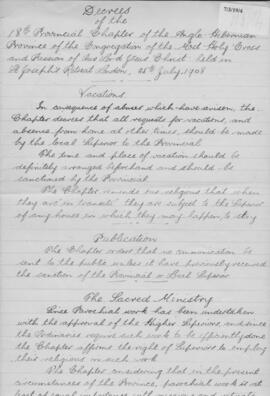 Decrees
of the
18th Provincial Chapter of the Anglo-Hibernian
Province of the Congregation of the Most Holy Cross
and Passion of Our Lord Jesus Christ held in
St Joseph's Retreat London, 25th July, 1908
Vacations
In consequence of abuses which have arisen, the
Chapter desires that all requests for vacations, and
absence from home at other times, should be made
by the Local Superior to the Provincial
The time and place of vacation should be
definitely arranged beforehand and should be
sanctioned by the Provincial
The Chapter reminds our religious that when
they are "in transitu" they are subject to the Superior
of any house in which they may happen to stay
Publication
The Chapter orders that no communication be
sent to the public unless it have previously received
the sanction of the Provincial or Local Superior
The Sacred Ministry
Since Parochial work has been undertaken
with the approval of the Higher Superiors, and since
the Ordinaries require such work to be efficiently done
the Chapter affirms the right of Superiors to employ
their religious in such work
The Chapter considering that in the present
circumstances of the Province, parochial work is at
least of equal importance with missions and retreats